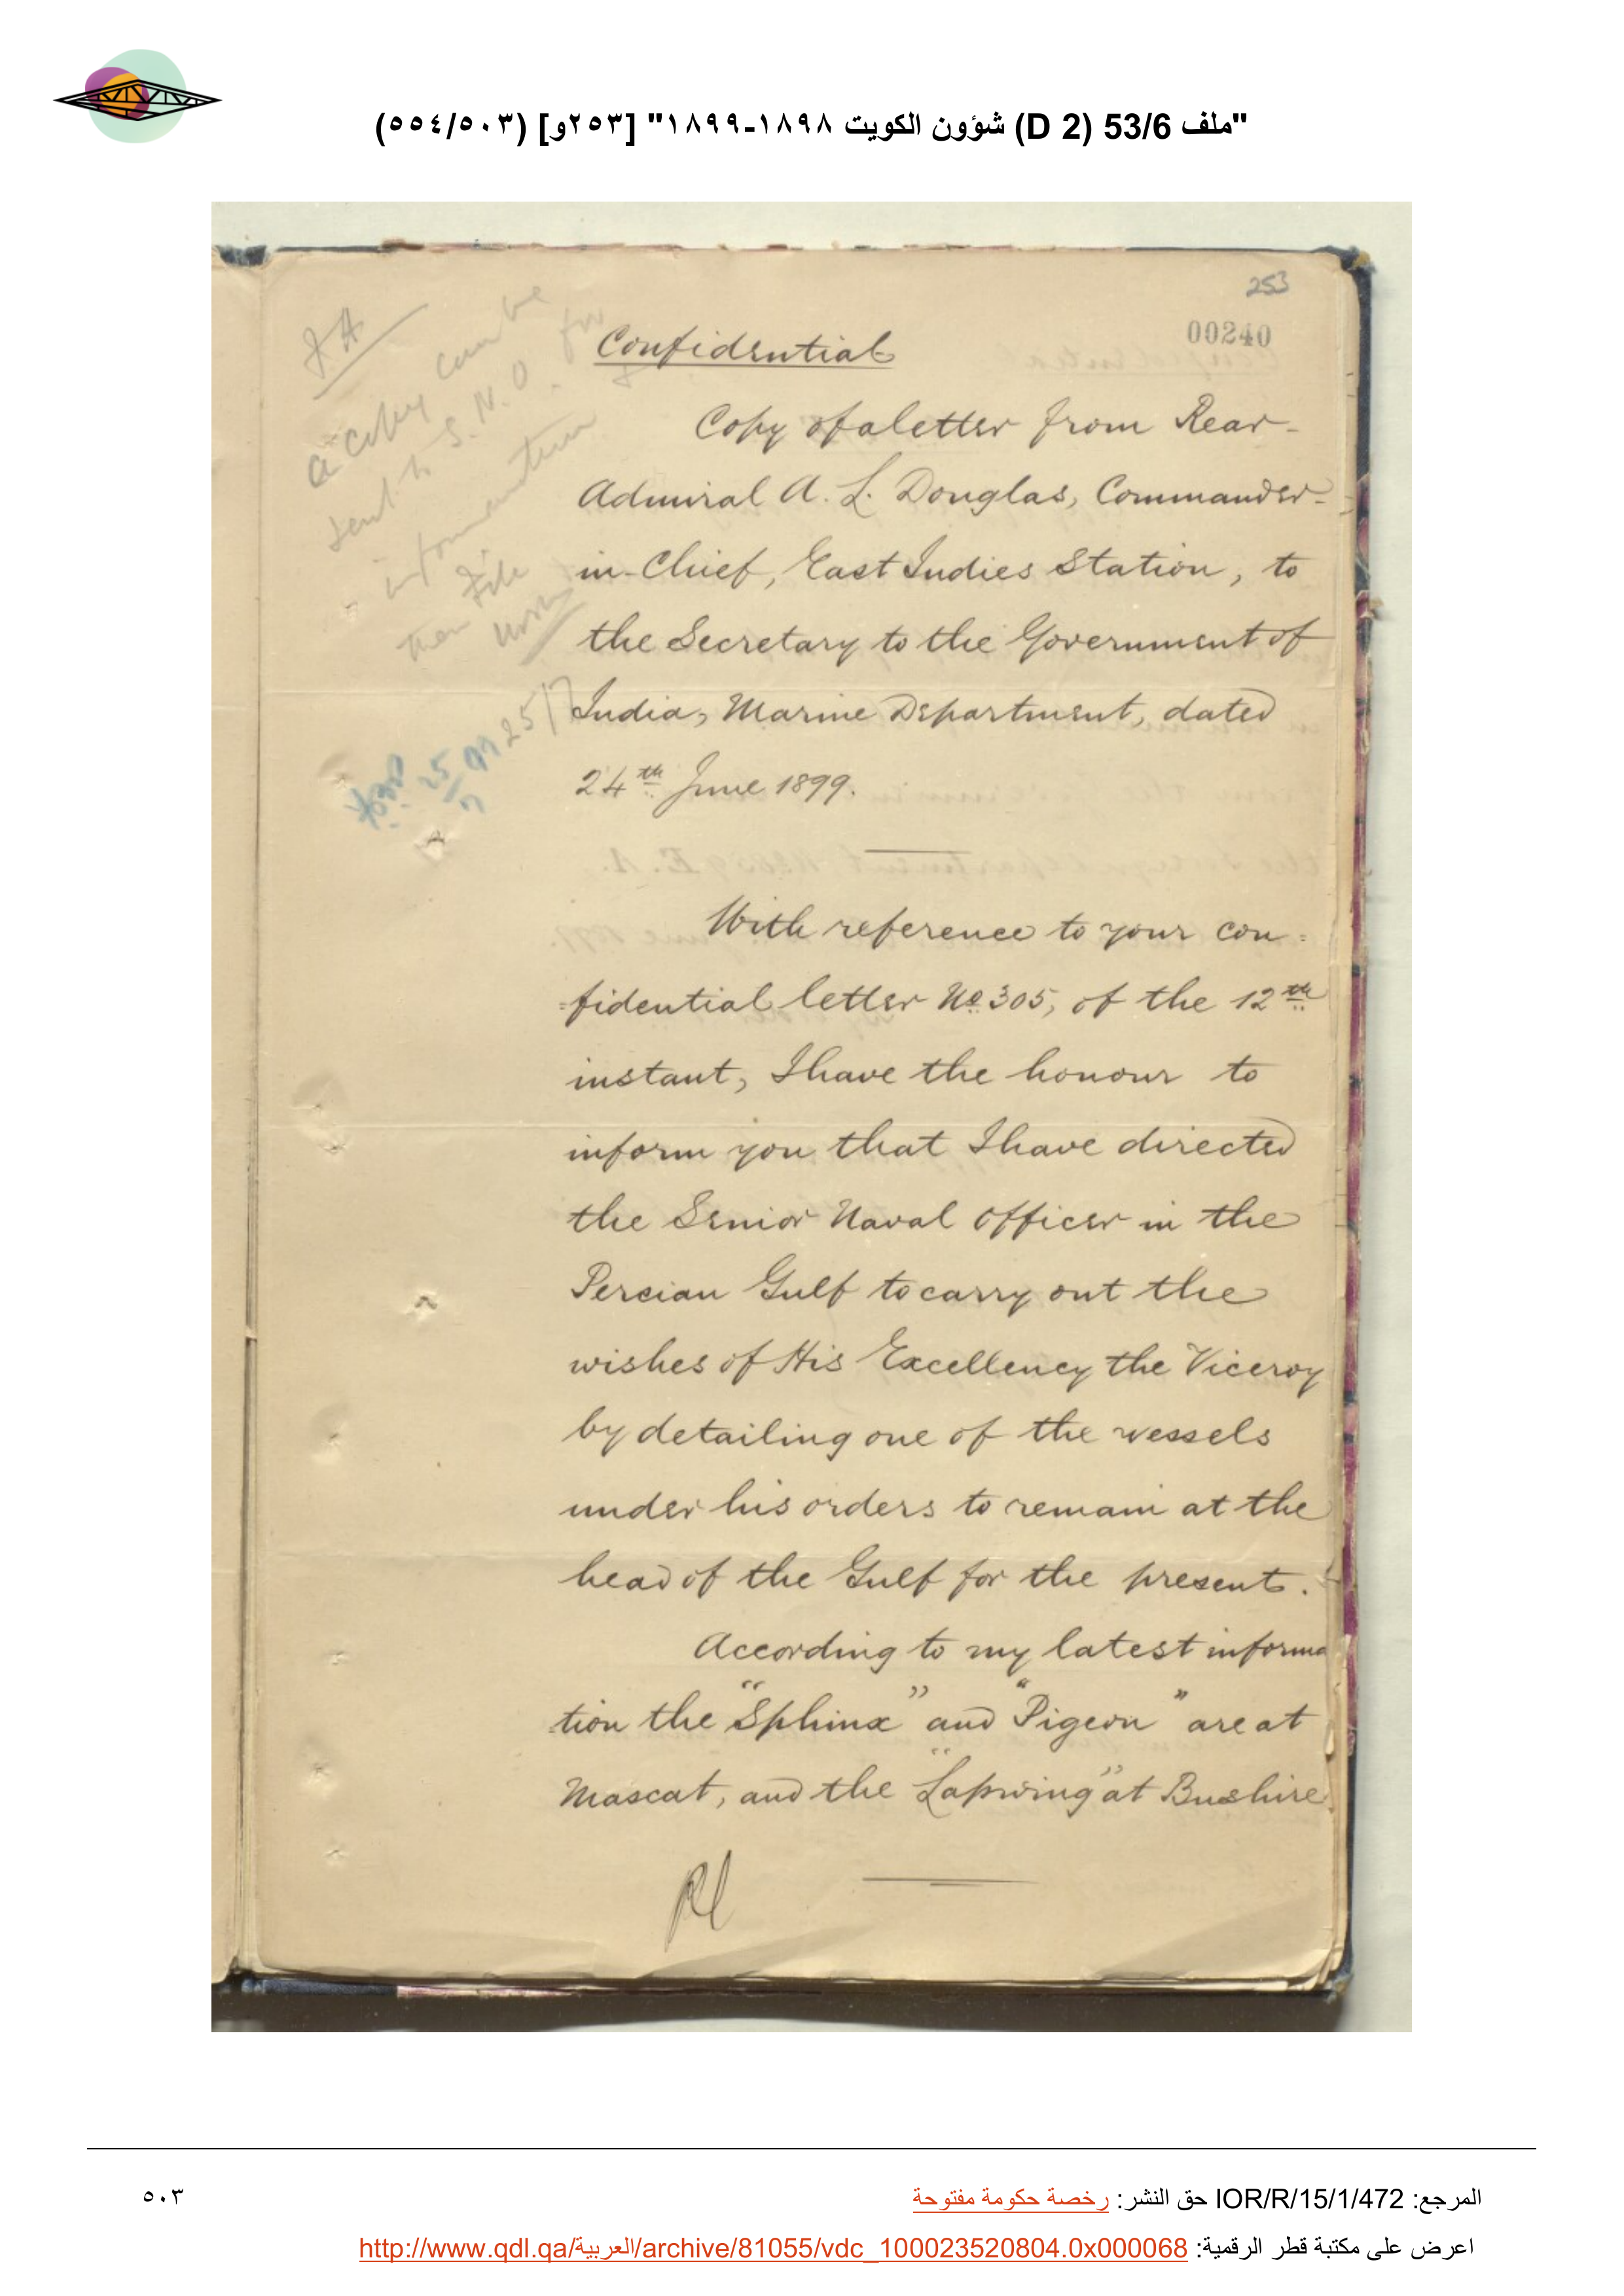 "ملف 53/6 (D 2) شؤون الكويت ١٨٩٨-١٨٩٩" [٢٥٣و] (٥٠٣/٥٥٤)
253
00240
Confidential
Copy of a letter from Rear-
Admiral A. L. Douglas, Commander-
in-Chief, East Indies Station, to
the Secretary to the Government of
India, Marine Department, dated
24th June 1899.
With reference to your con=
=fidential letter No 305, of the 12th
instant, I have the honour to
inform you that I have directed
the Senior Naval Officer in the
Percian Gulf to carry out the
wishes of His Excellency the Viceroy
by detailing one of the vessels
under his orders to remain at the
head of the Gulf for the present.
According to my latest informa
tion the "Sphinx" and "Pigeon" are at
Mascat, and the "Lapwing" at Bushire.
A copy can be
sent to S. N. O. for
information
then file
25/7
المرجع: IOR/R/15/1/472 حق النشر: رخصة حكومة مفتوحة
٥٠٣
اعرض على مكتبة قطر الرقمية: http://www.qdl.qa/العربية/archive/81055/vdc_100023520804.0x000068